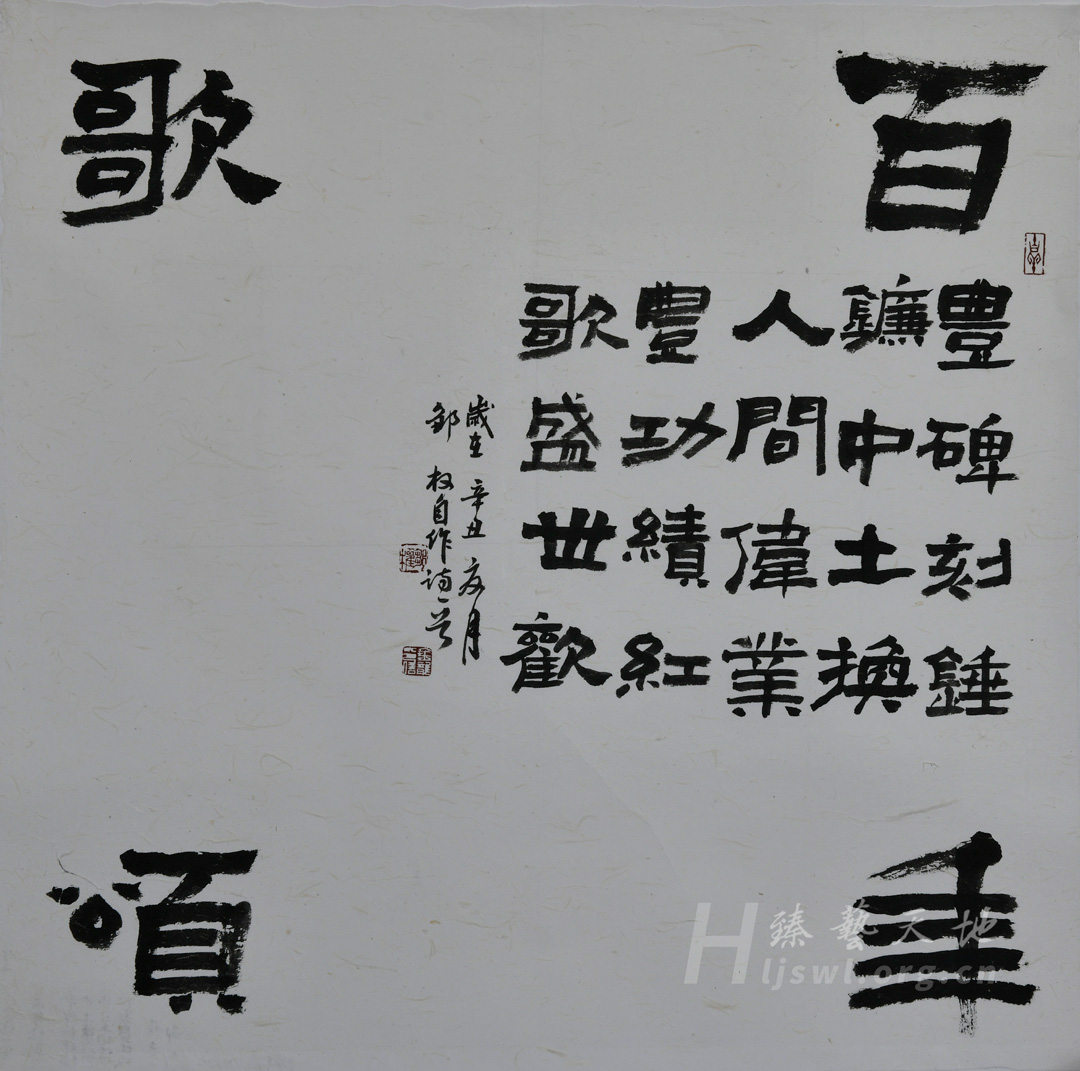 百年
歌頌
豊碑刻錘
鐮中土換
人間偉業
豊功績紅
歌盛世歡
歲在辛丑夏月
鄒权自作詩一首
臻藝天地
Hljswl.org.cn